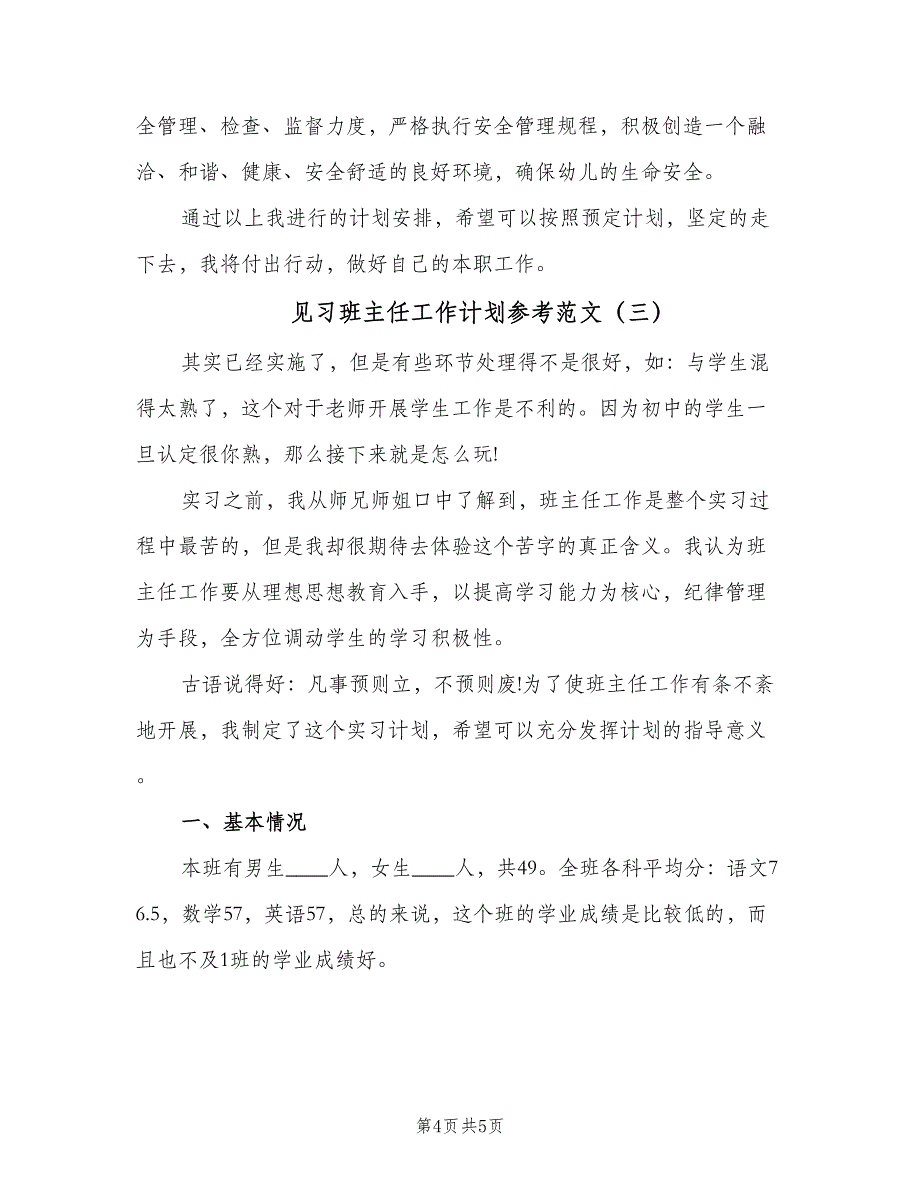 全管理、检查、监督力度，严格执行安全管理规程，积极创造一个融
洽、和谐、健康、安全舒适的良好环境，确保幼儿的生命安全。
通过以上我进行的计划安排，希望可以按照预定计划，坚定的走
下去，我将付出行动，做好自己的本职工作。
见习班主任工作计划参考范文（三）
其实已经实施了，但是有些环节处理得不是很好，如：与学生混
得太熟了，这个对于老师开展学生工作是不利的。因为初中的学生一
旦认定很你熟，那么接下来就是怎么玩!
实习之前，我从师兄师姐口中了解到，班主任工作是整个实习过
程中最苦的，但是我却很期待去体验这个苦字的真正含义。我认为班
主任工作要从理想思想教育入手，以提高学习能力为核心，纪律管理
为手段，全方位调动学生的学习积极性。
古语说得好：凡事预则立，不预则废!为了使班主任工作有条不紊
地开展，我制定了这个实习计划，希望可以充分发挥计划的指导意义
。
一、基本情况
本班有男生____人，女生____人，共49。全班各科平均分：语文7
6.5，数学57，英语57，总的来说，这个班的学业成绩是比较低的，而
且也不及1班的学业成绩好。
第4页 共5页